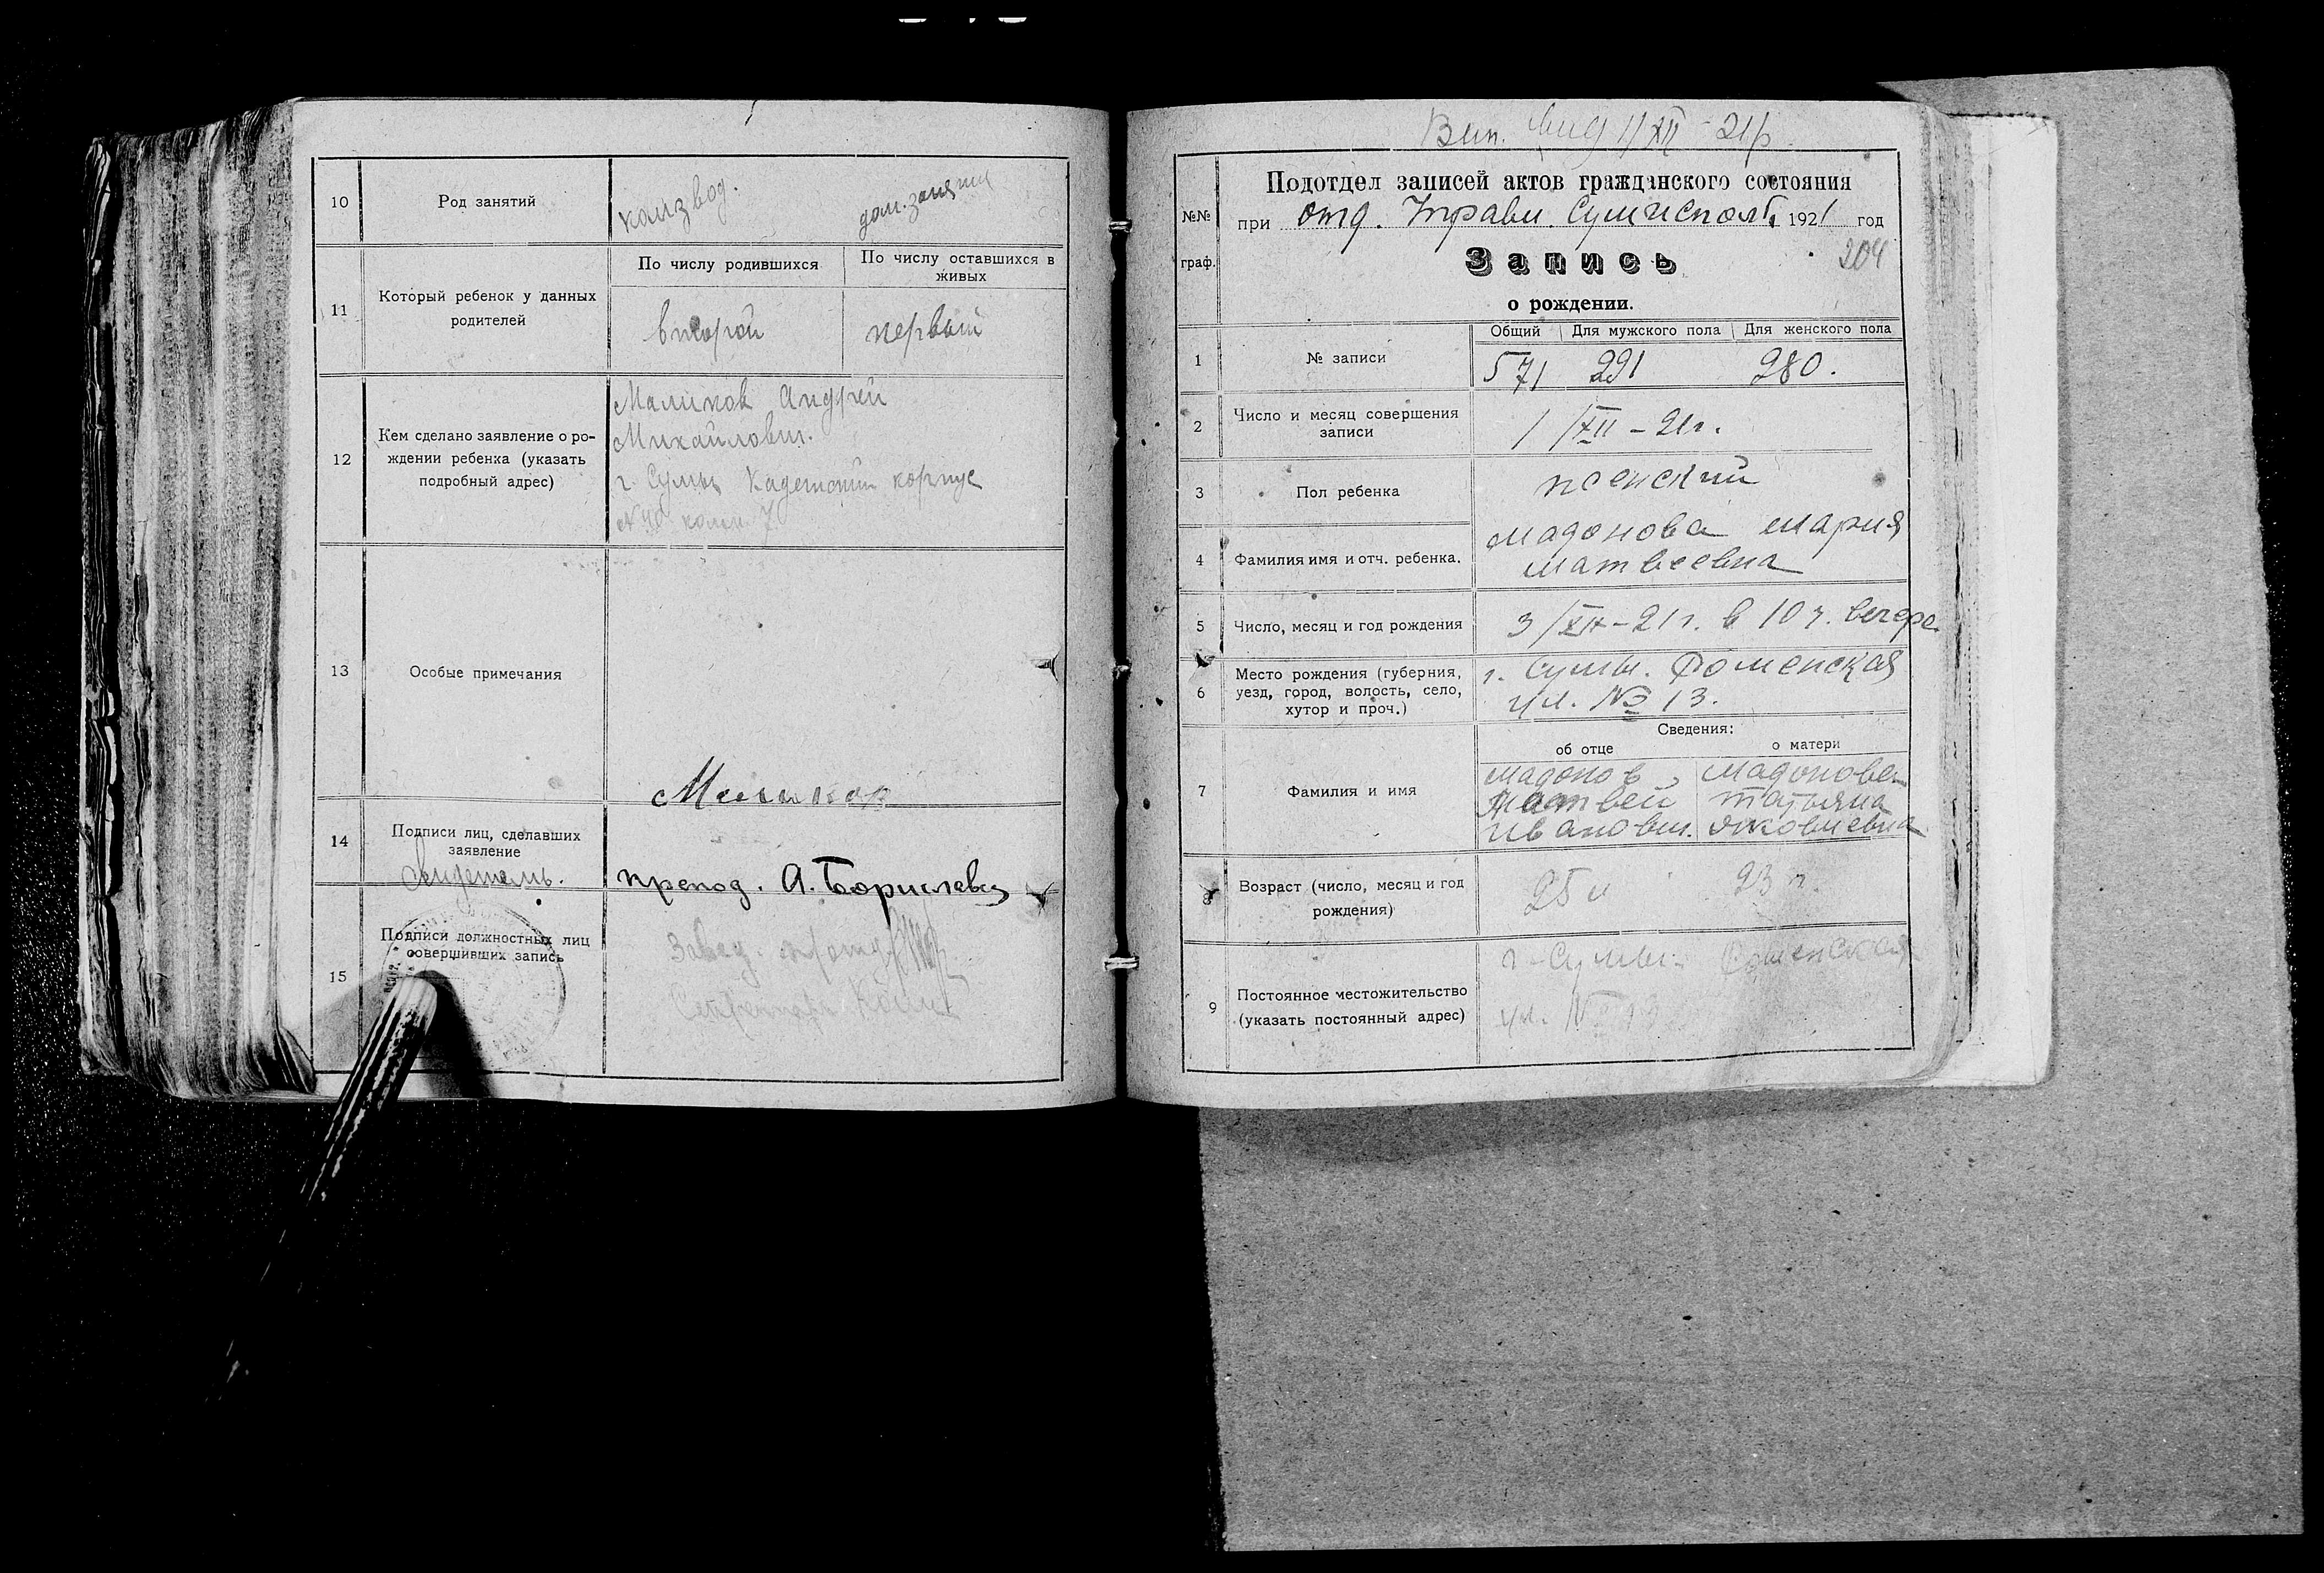 10
Род занятий
комзвод.
дом. занятия
11
Который ребенок у данных
родителей
По числу родившихся
По числу оставшихся в
живых
второй
первый
12
Кем сделано заявление о ро-
ждении ребенка (указать
подробный адрес)
Маликов Андрей
Михайлович.
г. Сумы Кадетский корпус
комн. 7
13
Особые примечания
Маликов
14
Подписи лиц, сделавших
заявление
Свидетель.
препод. А.
15
Подписи должностных лиц
совершивших запись
Завед.
Секретарь
1/XII - 21р
№№
граф.
Подотдел записей актов гражданского состояния
при отд. Управл. 1921 год
204
Запись
о рождении.
1
№ записи
Общий
Для мужского пола
Для женского пола
571
291
280.
2
Число и месяц совершения
записи
1/XII - 21г.
3
Пол ребенка
женский
4
Фамилия имя и отч. ребенка.
Мадонова Мария
Матвеевна
5
Число, месяц и год рождения
21 г. в 10 ч. вечера
6
Место рождения (губерния,
уезд, город, волость, село,
хутор и проч.)
г. Сумы. Роменская
ул. № 13.
7
Фамилия и имя
Сведения:
об отце
о матери
Мадонов
Матвей
Иванович.
Мадонова
Татьяна
Яковлевна
8
Возраст (число, месяц и год
рождения)
25 л
23 г.
9
Постоянное местожительство
(указать постоянный адрес)
г. Сумы. Роменская
ул. №